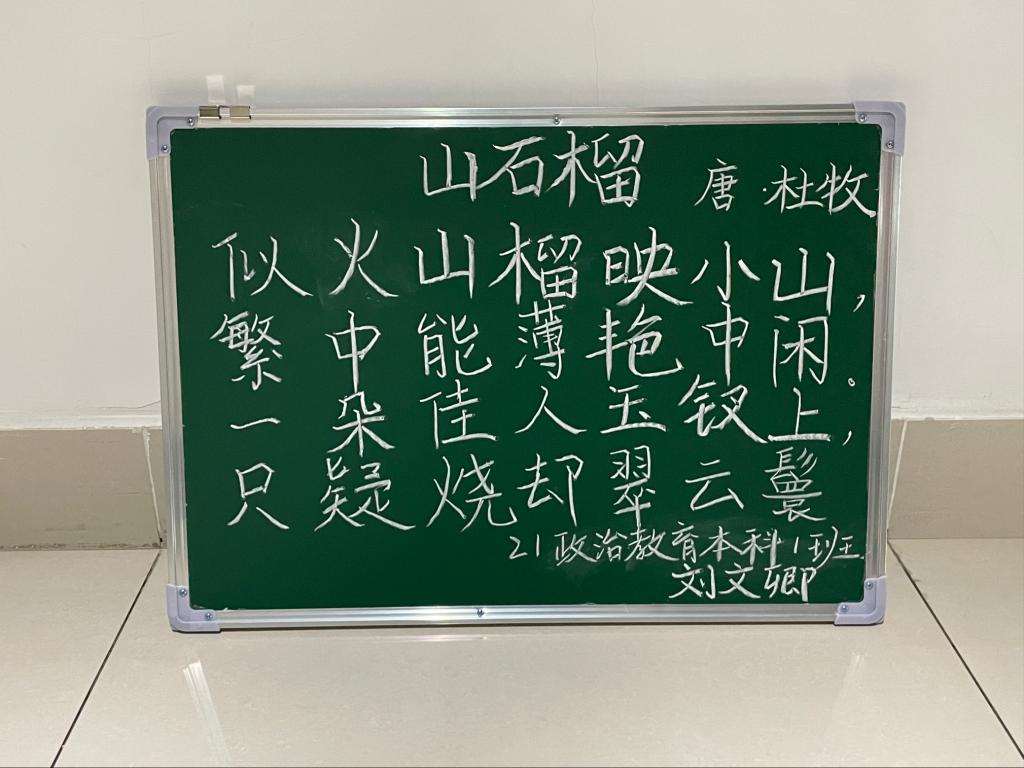 山石榴
唐·杜牧
似火山榴映小山,
繁中能薄艳中闲。
一朵佳人玉钗上,
只疑烧却翠云鬟
21政治教育本科1班
刘文卿